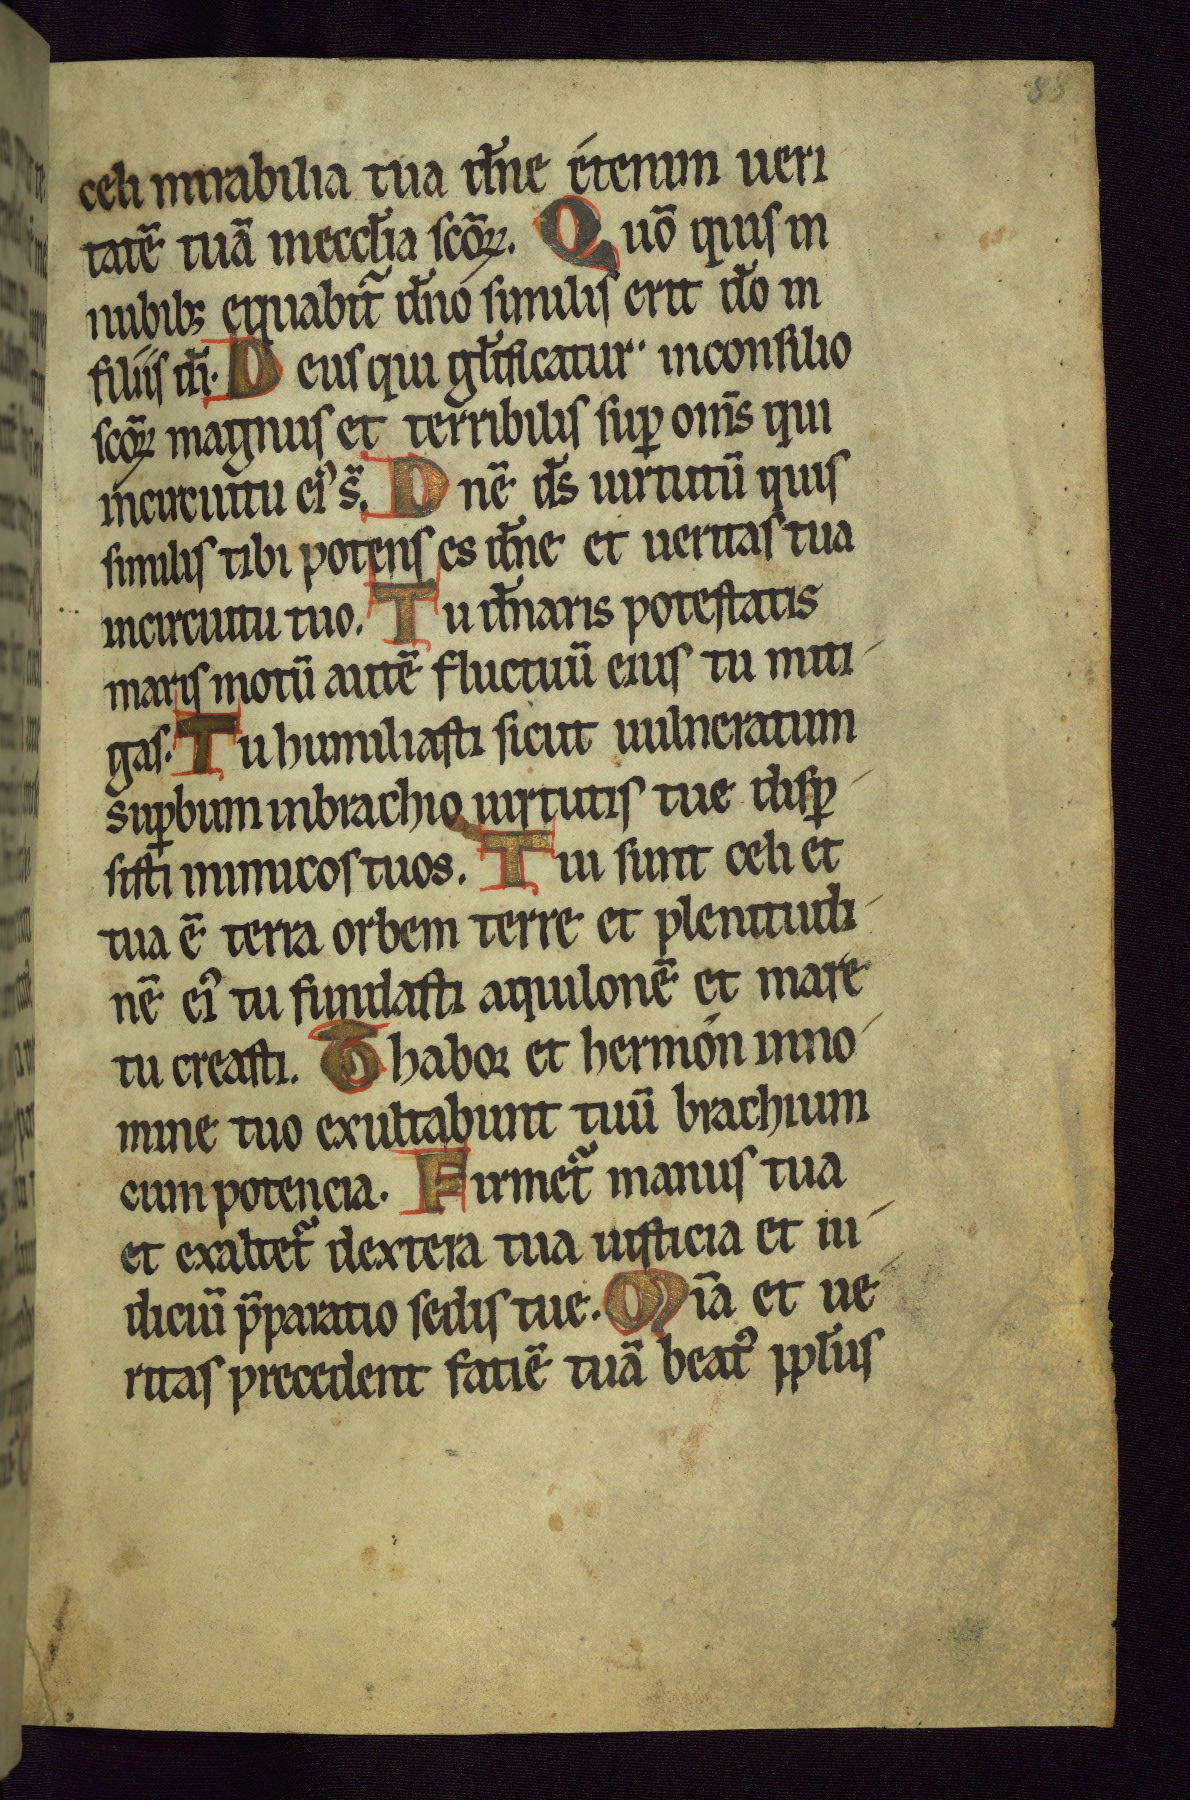 88
celi mirabilia tua dn̄e étenim ueri
tatē tuā inecclīa scōꝝ. Quō quis in
nubibꝫ equabit᷑ dn̄ó similis erit dō in
filiis dī. Deus qui gl̄ificatur inconsilio
scōꝝ magnus et terribilis suꝑ om̄s qui
incircuitu ei᷒ s̄. Dnē ds̄ uirtutū quis
similis tibi potens es dn̄e et ueritas tua
incircuitu tuo. Tu dn̄aris potestatis
maris motū autē fluctuū eius tu miti
gas. Tu humiliasti sicut uulneratum
suꝑbum inbrachio uirtutis tue disꝑ
sisti inimicos tuos. Tui sunt celi et
tua ē terra orbem terre et plenitudi
nē ei᷒ tu fundasti aquilonē et mare
tu creasti. Thabor et hermón inno
mine tuo exultabunt tuū brachium
cum potencia. Firmet᷑ manus tua
et exaltet᷑ dextera tua iusticia et iu
diciū p̄paratio sedis tue. Mīa et ue
ritas precedent fatiē tuā beat᷒ ppl̄us